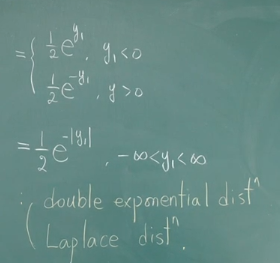 = { 1/2 e^{y₁} , y₁ < 0
1/2 e^{-y₁} , y > 0
= 1/2 e^{-|y₁|} , -∞ < y₁ < ∞
∴ double exponential distⁿ
( Laplace distⁿ.